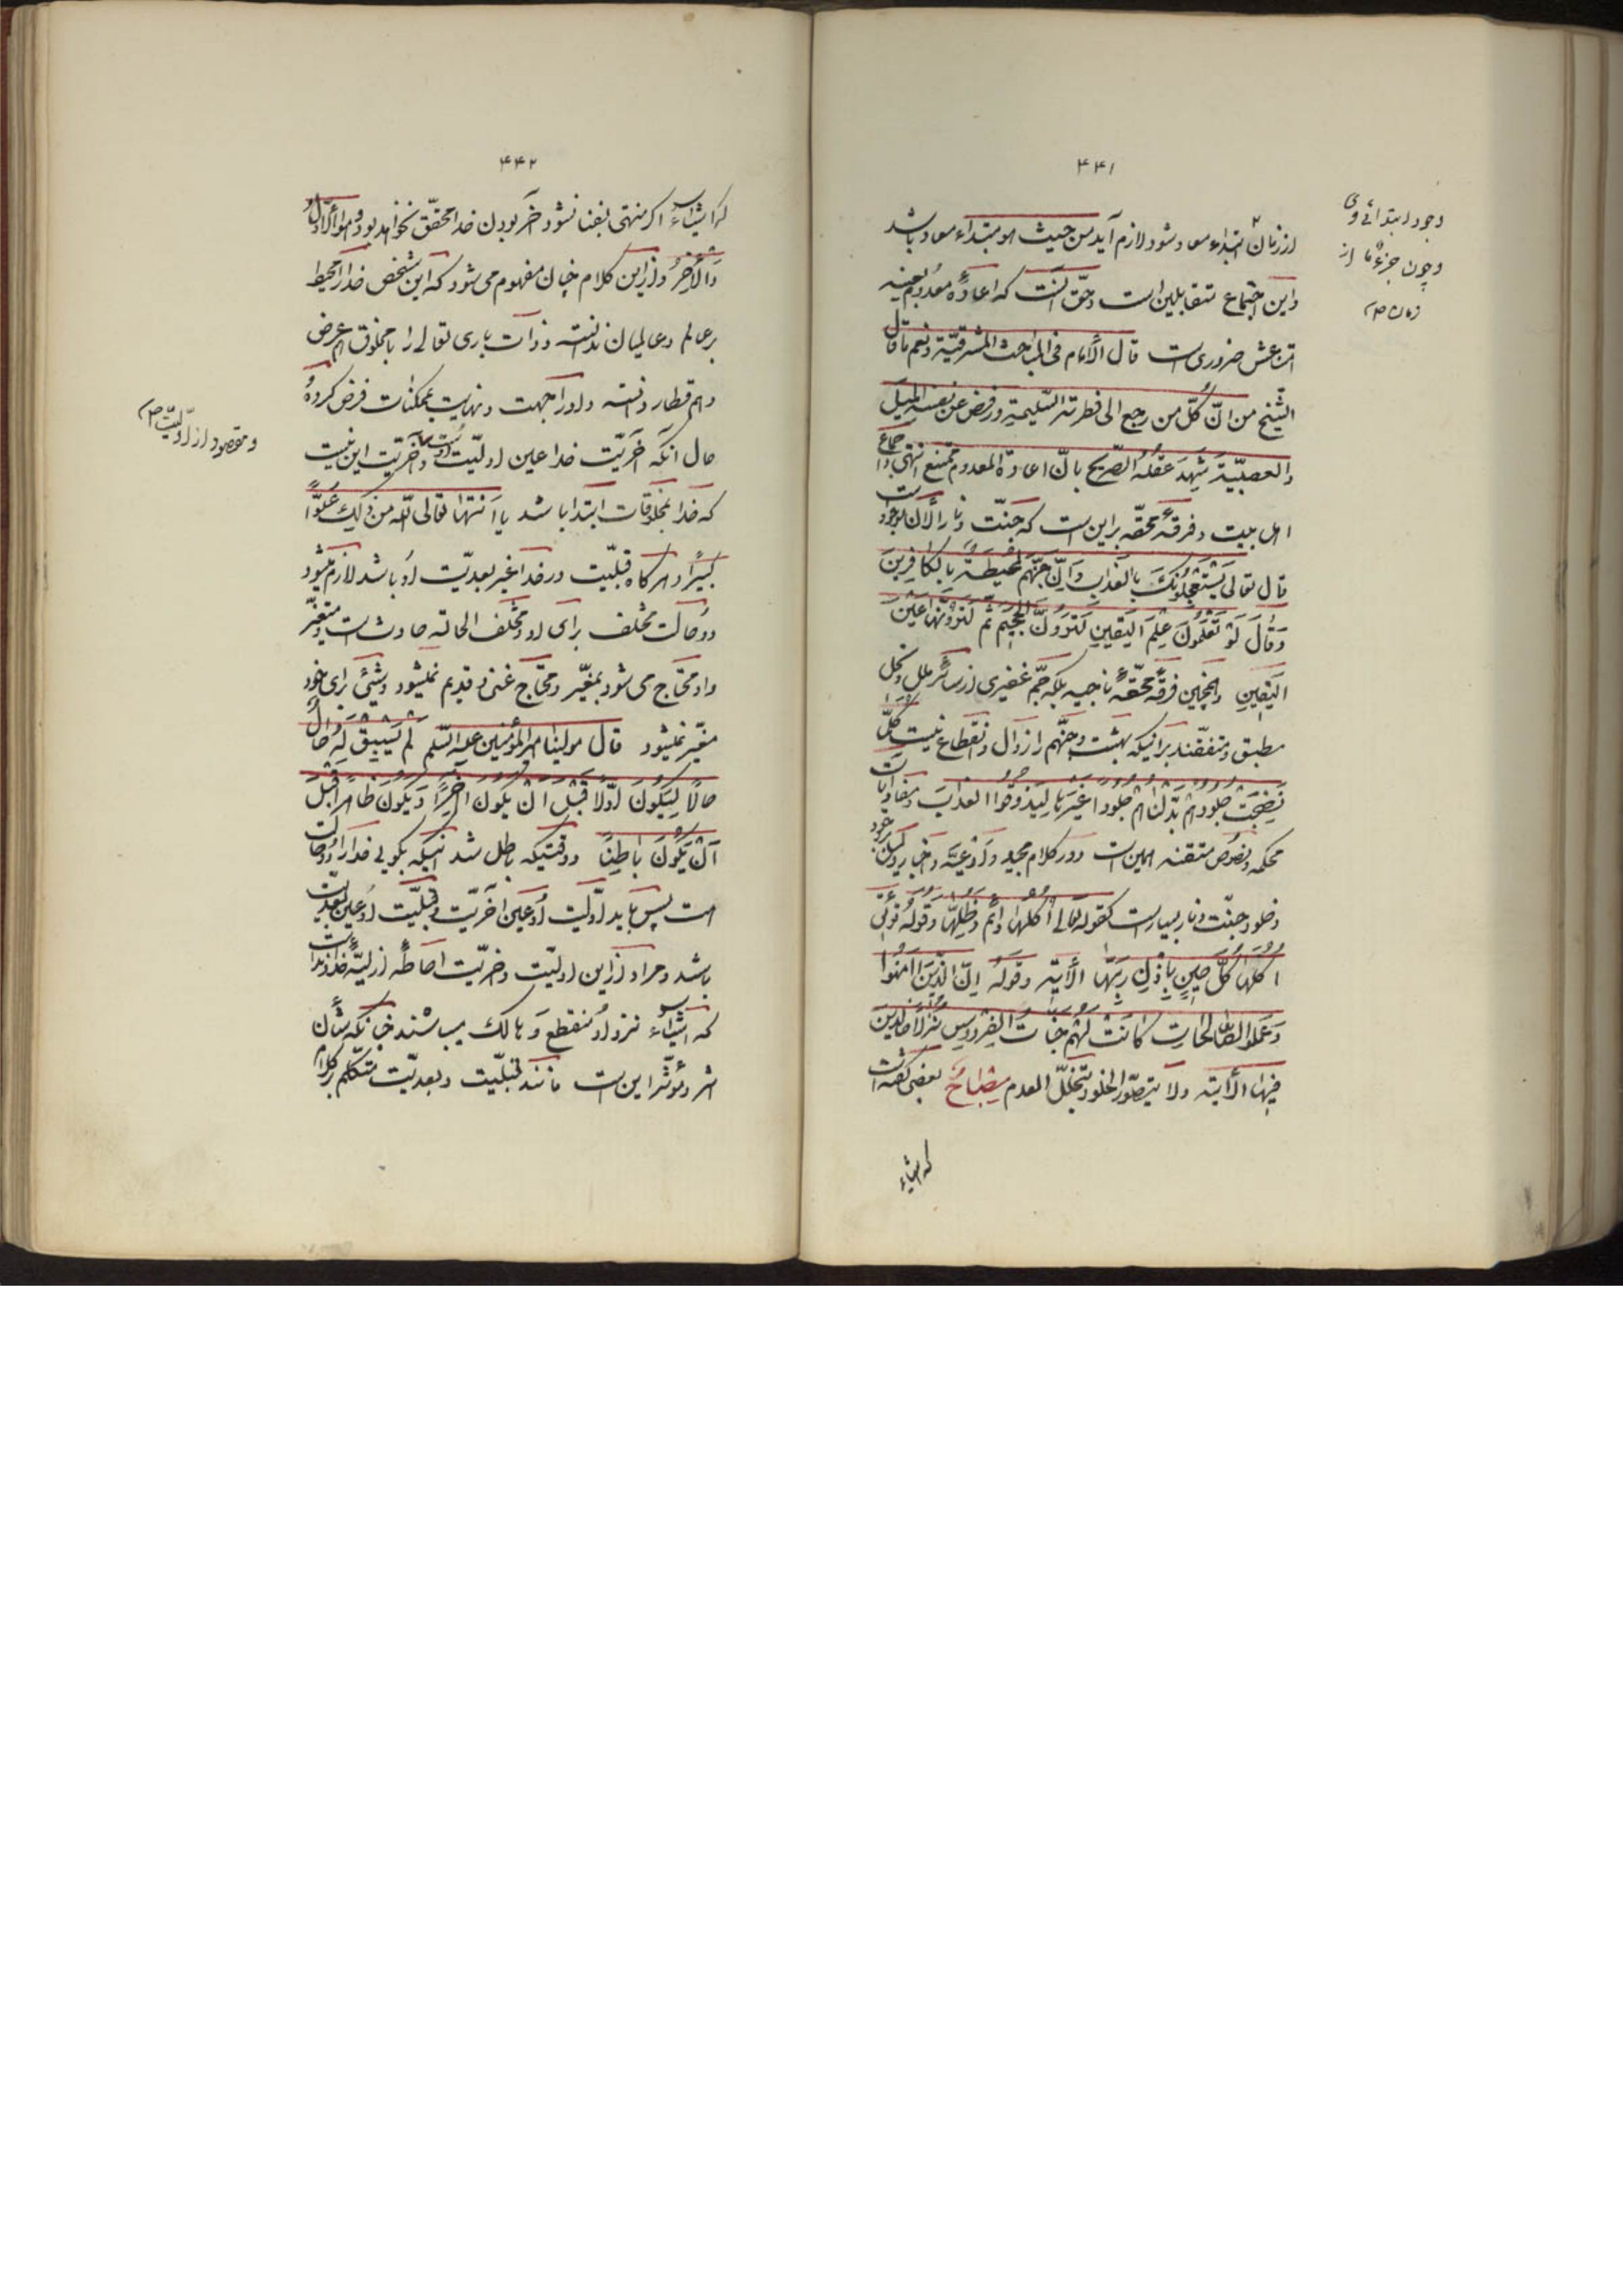 ۴۴۱
وجود ابتدائی وی
وچون جزء ما از
زمان ص
از زمان ابتداء معاد شود لازم آید من حیث هو مبتداء معاد باشد
و این اجتماع متقابلین است و حقّ آنست که اعادهٔ معدوم بعینه
امتناعش ضروری است قال الأمام فی المباحث المشرقیّة و نعم ما قال
الشّیخ من انّ کلّ من رجع الی فطرته السّلیمة و رفض عن نفسه المیل
و العصبیّة شهد عقله الصّریح بانّ اعادة المعدوم ممتنع انتهی و اجماع
اهل بیت و فرقهٔ محقّه براین است که جنّت و نار الأن موجود است
قال تعالی یستعجلونک بالعذاب و انّ جهنّم لمحیطة بالکافرین
و قال لو تعلمون علم الیقین لترونّ الجحیم ثمّ لترونّها عین
الیقین و همچنین فرقهٔ محقّهٔ ناجیه بلکه جمّ غفیری از سائر ملل و نحل
مطبق و متفقّند بر اینکه بهشت و جهنّم را زوال و انقطاع نیست کلّما
نضجت جلودهم بدّلناهم جلودا غیرها لیذوقوا العذاب و مفاد آیات
محکمه و نصوص متقنه همین است و در کلام مجید و ادعیّه و اخبار دلیل بر وجود
و خلود جنّت و نار بسیار است کقوله تعالی اکلها دائم و ظلّها و قوله تؤتی
اکلها کلّ حین باذن ربّها الأیة و قوله انّ الّذین امنوا
و عملوا الصّالحات کانت لهم جنّات الفردوس نزلا خالدین
فیها الأیة ولا یتصوّر الخلود بتخلّل العدم مصباح بعضی گفته است
که اشیاء
۴۴۲
که اشیاء اگر منتهی بفنا نشود آخر بودن خدا محقّق نخواهد بود و هو الأوّل
والأخر و از این کلام چنان مفهوم می شود که این شخص خدا را محیط
بر عالم و عالمیان ندانسته و ذات باری تعالی را با مخلوق هم عرض
و هم قطار دانسته و او را جهت و نهایت بممکنات فرض کرده
حال آنکه آخریّت خدا عین اولیّت اوست و آخریّت این نیست
و مقصود از اولیّت ص
که خدا بمخلوقات ابتدا باشد یا انتها تعالی الله من ذلک علوّا
کبیرا و هر گاه قبلیّت در خدا غیر بعدیّت او باشد لازم میشود
دو حالت مختلف برای او و مختلف الحالة حادث است و متغیّر
و او محتاج می شود بمغیّر و محتاج غنی و قدیم نمیشود و شیئی برای خود
مغیّر نمیشود قال مولینا امیر المؤمنین علیه السّلم لم یسبق له حال
حالا لیکون اوّلا قبل ان یکون اخرا و یکون ظاهرا قبل
ان یکون باطنا و وقتیکه باطل شد اینکه بگوئی خدا را دو حالت
است پس باید اوّلیت او عین اخریّت و قبلیّت او عین بعدیّت
باشد و مراد از این اولیّت و اخریّت احاطهٔ ازلیّهٔ خداوند است
که اشیاء نزد او منقطع و هالک میباشند چنانکه شأن
اثر و مؤثّر این است مانند قبلیّت و بعدیّت متکلّم بر کلام